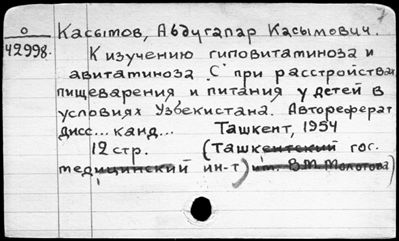 7
0
42998.
Касытов, Абдугапар Касымович.
К изучению гиповитаминоза и
авитаминоза С при расстройствах
пищеварения и питания у детей в
условиях Узбекистана. Автореферат
дисс... канд... Ташкент, 1954
12 стр. (Ташкентский гос.
медицинский ин-т) им. В.М. Молотова)